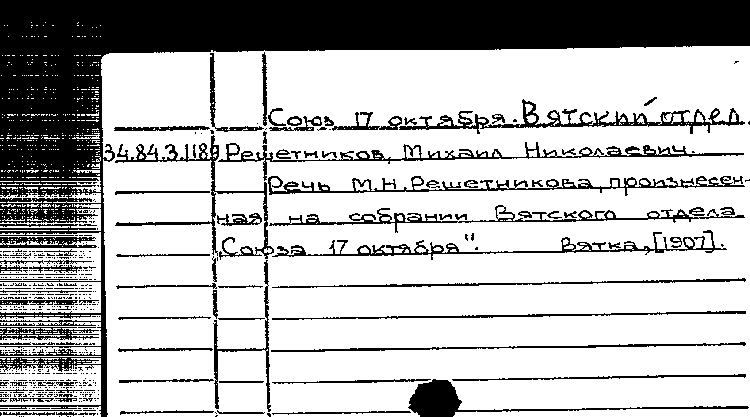 Союз 17 октября. Вятский отдел.
34.84.3.1189 Решетников, Михаил Николаевич.
Речь М.Н.Решетникова, произнесен-
ная на собрании Вятского отдела
„Союза 17 октября". Вятка, [1907].